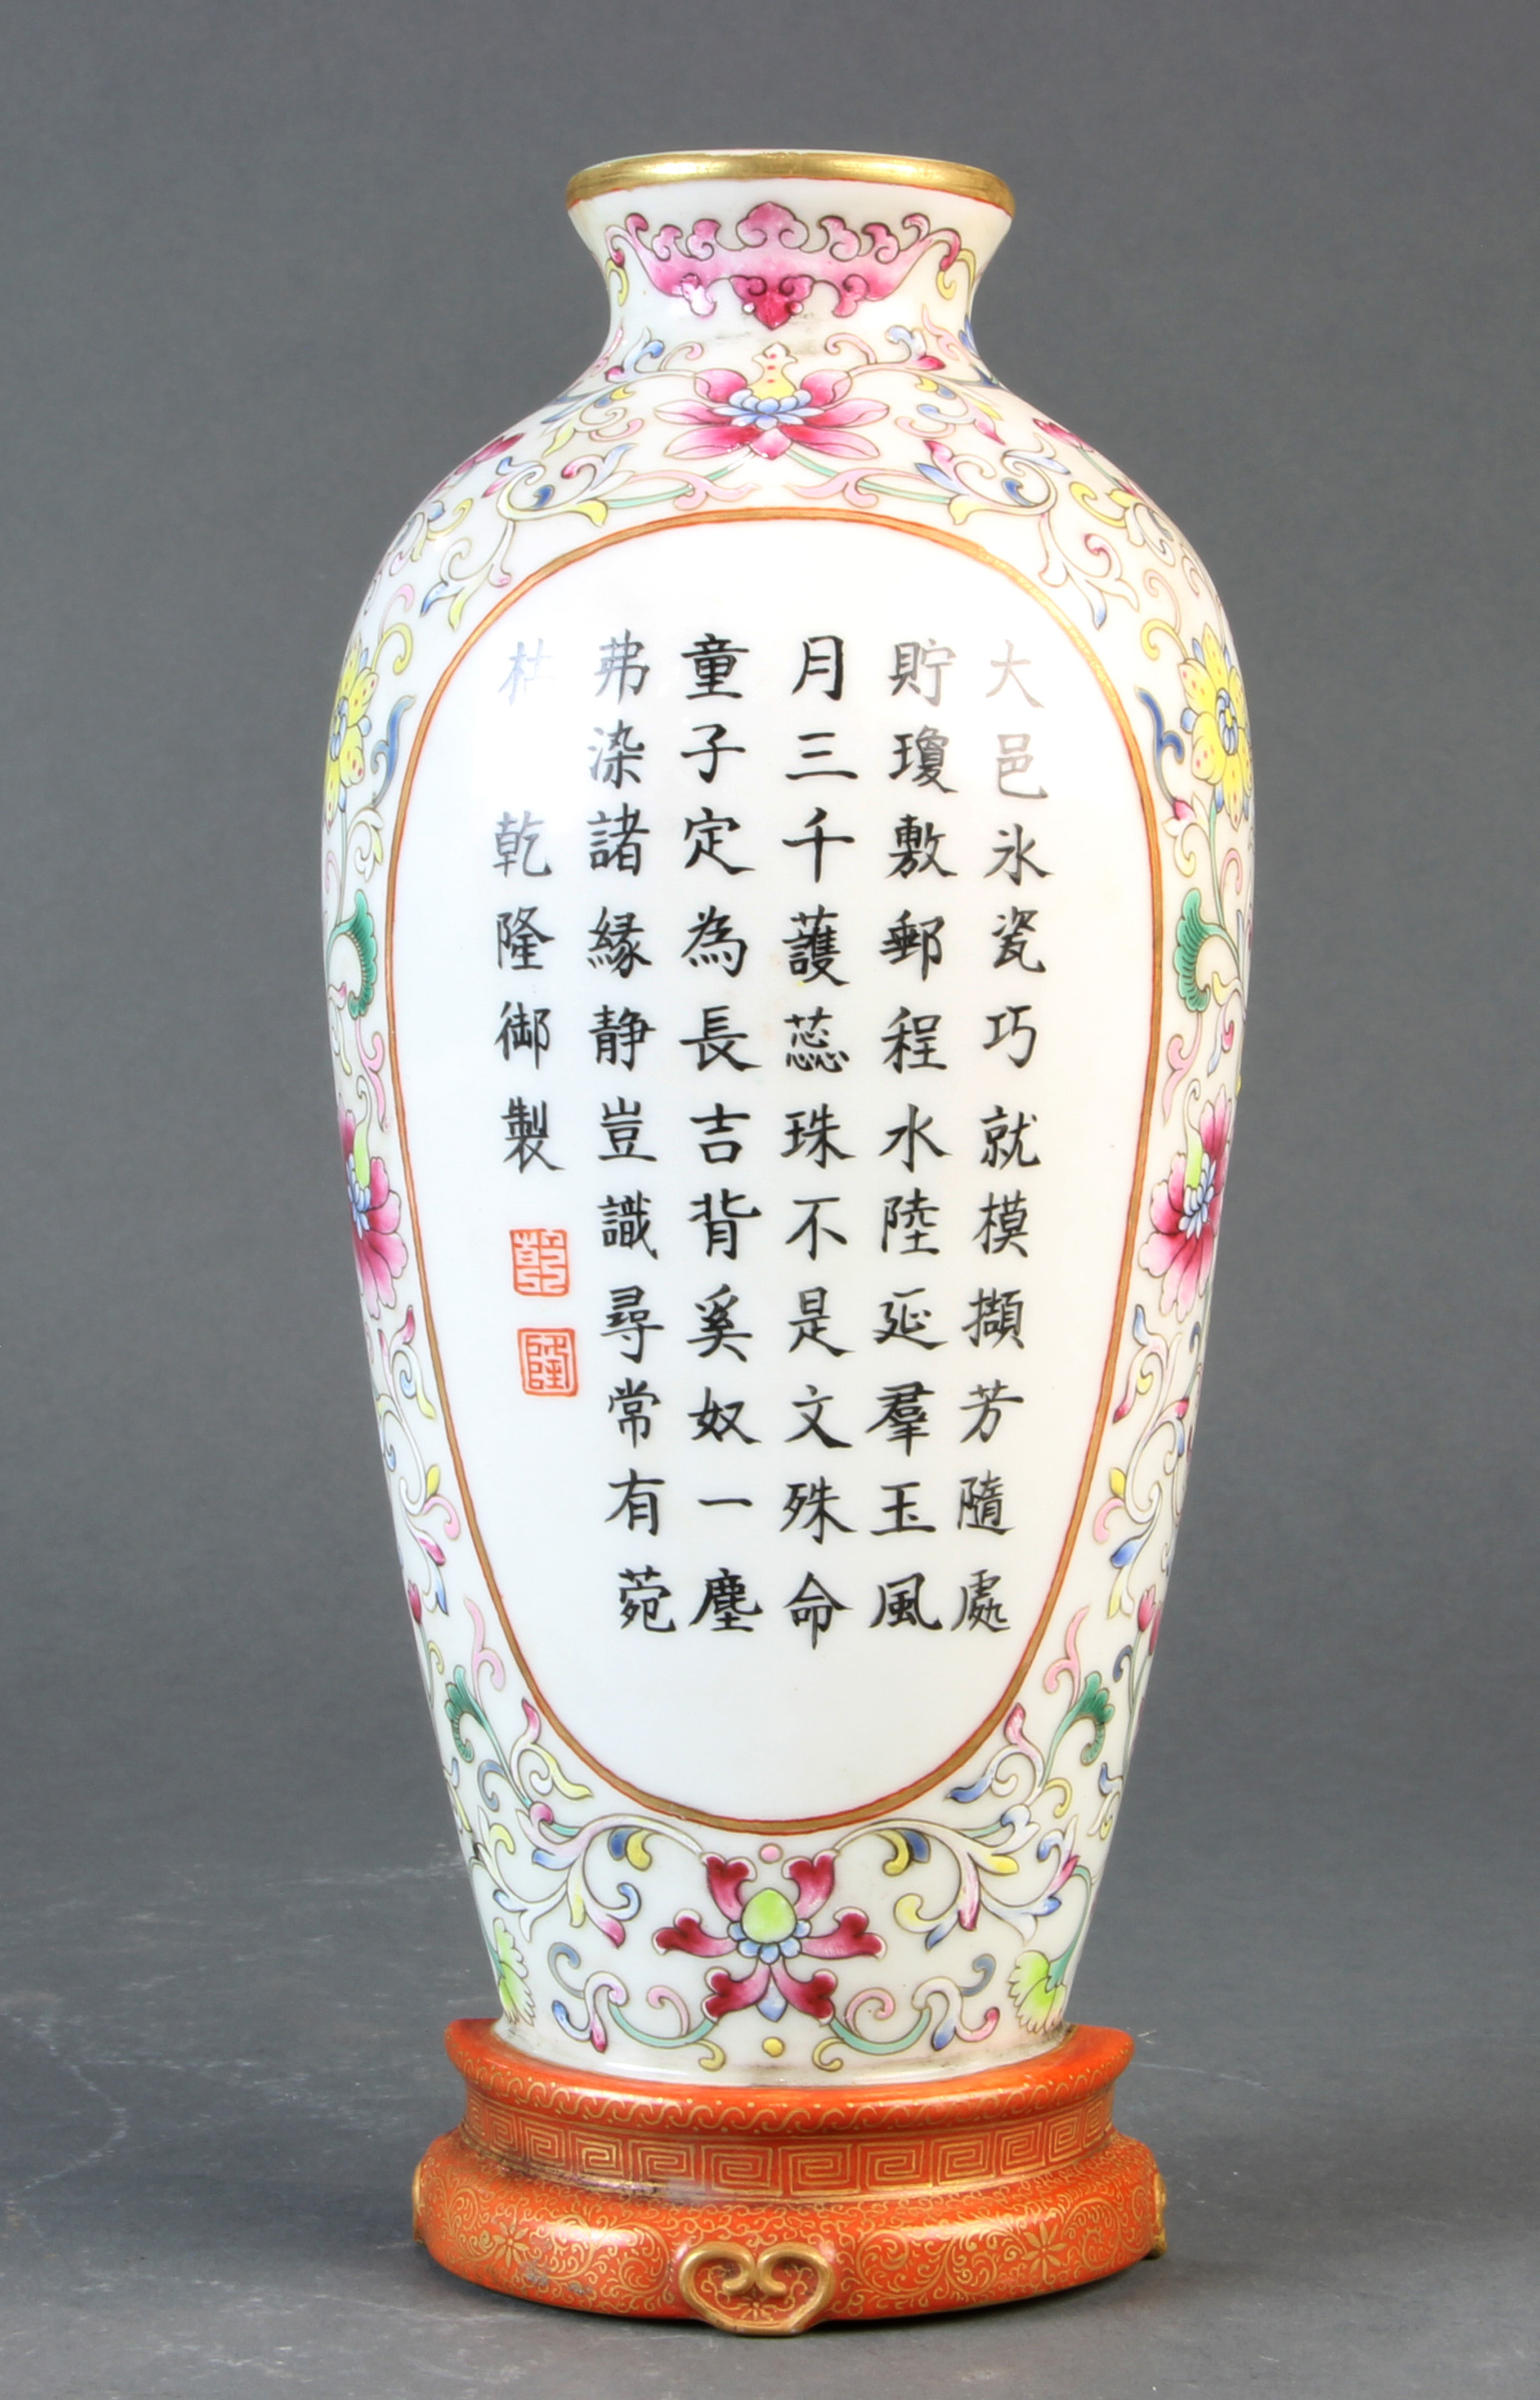 大邑氷瓷巧就模擷芳隨處
貯瓊敷郵程水陸延羣玉風
月三千護蕊珠不是文殊命
童子定為長吉背奚奴一塵
弗染諸緣靜豈識尋常有菀
枯 乾隆御製
乾
隆